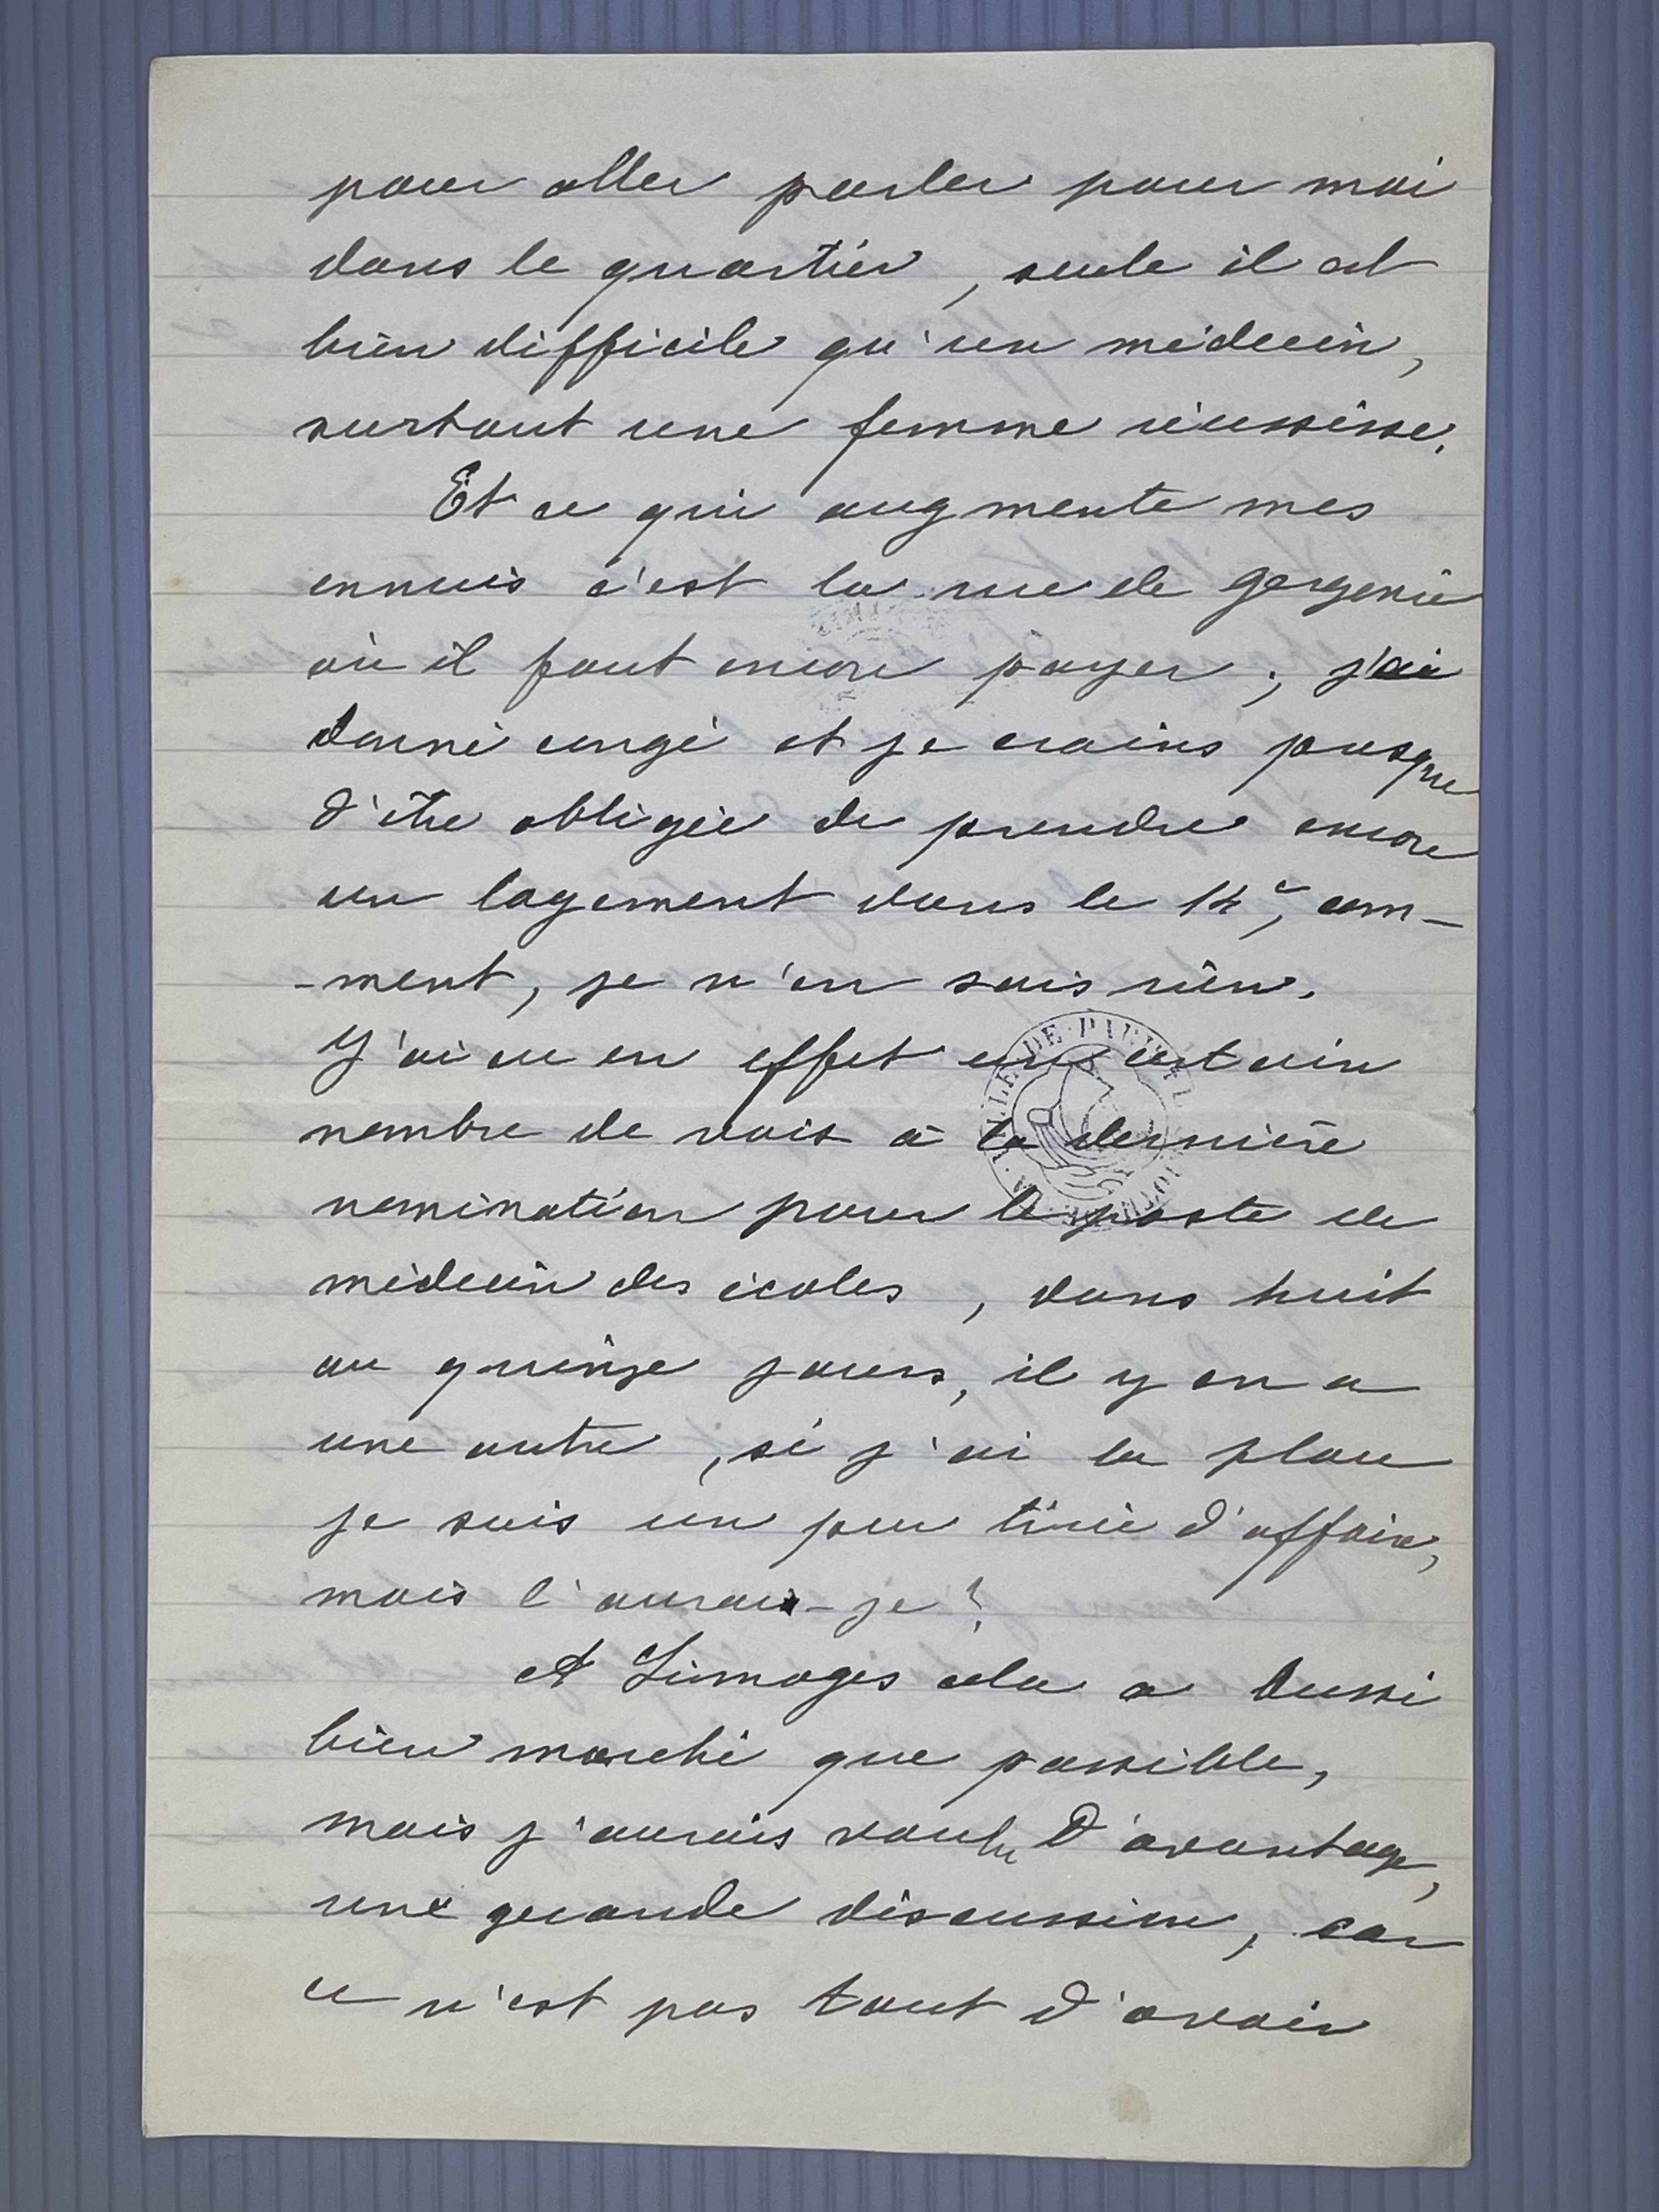 pour aller parler pour moi
dans le quartier, seule il est
bien difficile qu'un médecin,
surtout une femme réussisse.
Et ce qui augmente mes
ennuis c'est la rue de Gergovie
où il faut encore payer ; j'ai
donné congé et je crains presque
d'être obligée de prendre encore
un logement dans le 14e, com-
-ment, je n'en sais rien.
J'ai eu en effet un certain
nombre de voix à la dernière
nomination pour le poste de
médecin des écoles, dans huit
ou quinze jours, il y en a
une autre, si j'ai la place
je suis un peu tirée d'affaire,
mais l'aurai-je ?
A Limoges cela a aussi
bien marché que possible,
mais j'aurais voulu d'avantage,
une grande discussion, car
ce n'est pas tout d'avoir
VILLE DE PARIS